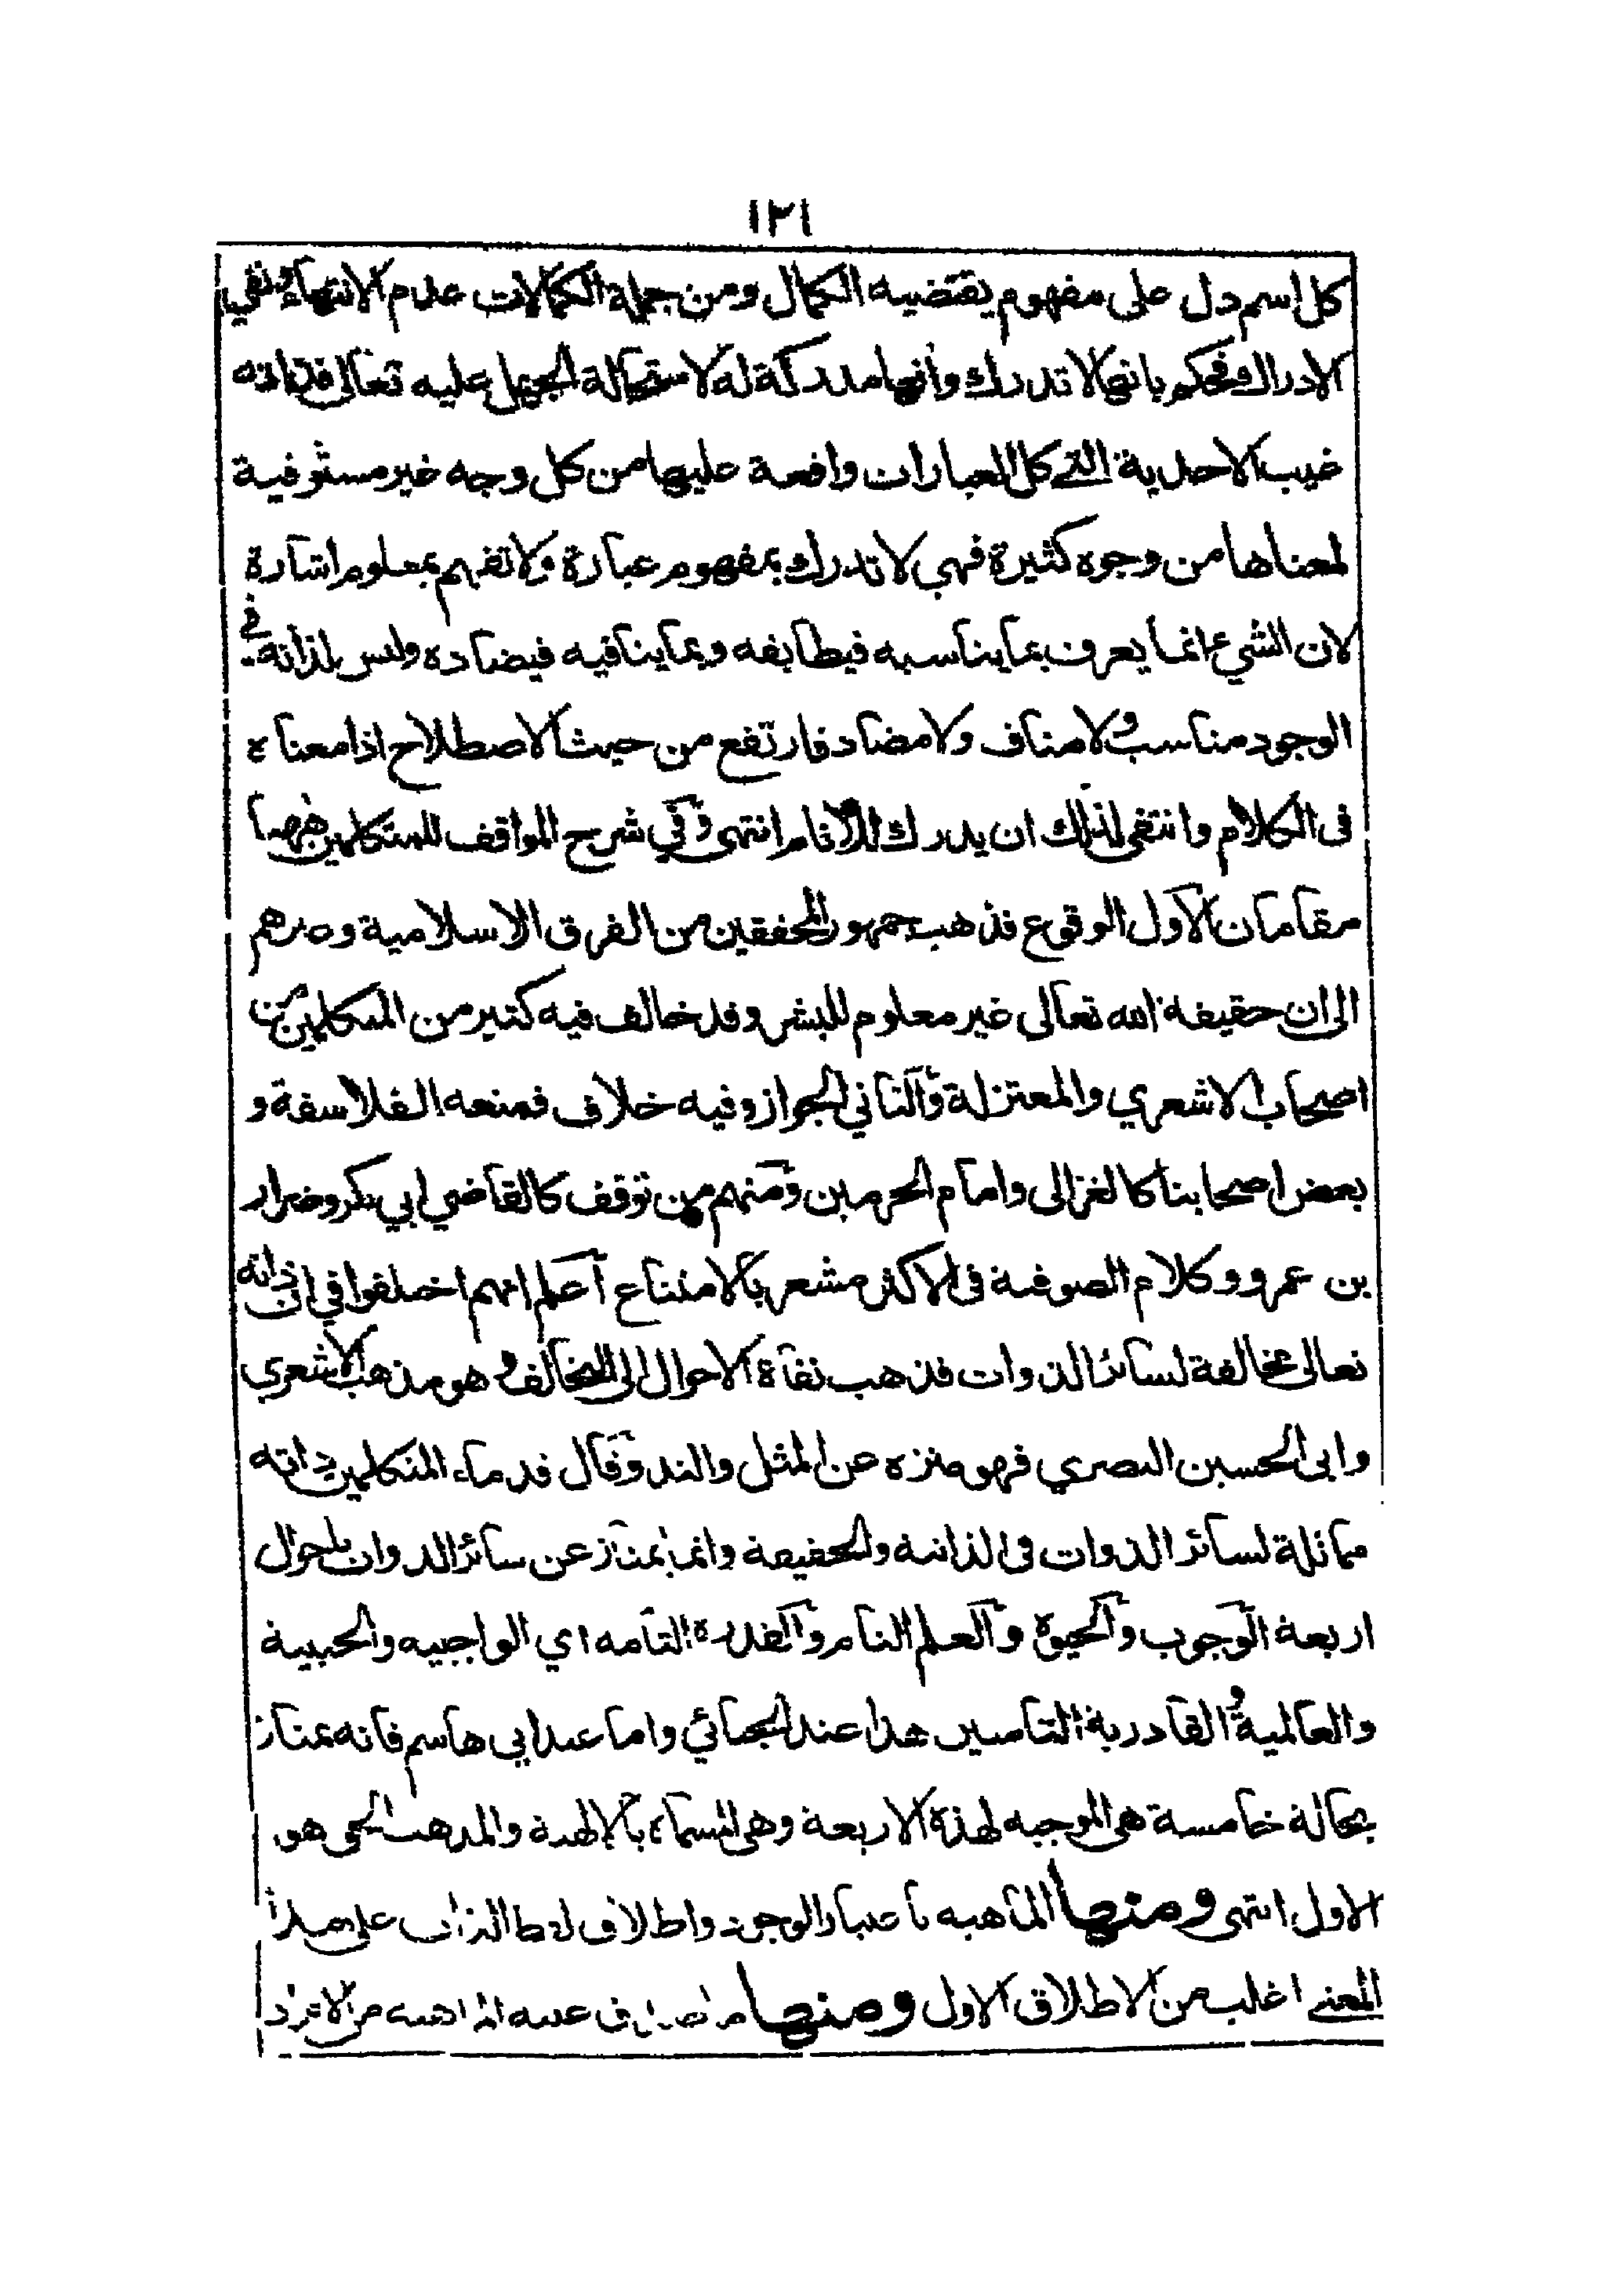 ١٢١
كل اسم دل على مفهوم يقتضيه الكمال ومن جملة الكمالات عدم الانتهاء ونفي
الادراك فحكم بانها لا تدرك وأنها مدركة له لاستحالة الجهل عليه تعالى فذاته
غيب الاحدية التي كل العبارات واقعة عليها من كل وجه غير مستوفية
لمعناها من وجوه كثيرة فهي لا تدرك بمفهوم عبارة ولا تفهم بمعلوم اشارة
لان الشيء انما يعرف بما يناسبه فيطابقه وبما ينافيه فيضاده وليس لذاته في
الوجود مناسب ولا مناف ولا مضاد فارتفع من حيث الاصطلاح اذا معناه
فى الكلام وانتفى لذلك ان يدرك للانام انتهى وفي شرح المواقف للمتكلمين ههنا
مقامان الاول الوقوع فذهب جمهور المحققين من الفرق الاسلامية وغيرهم
الى ان حقيقة الله تعالى غير معلوم للبشر وقد خالف فيه كثير من المتكلمين من
اصحاب الاشعري والمعتزلة والثاني الجواز وفيه خلاف فمنعه الفلاسفة و
بعض اصحابنا كالغزالى وامام الحرمين ومنهم من توقف كالقاضي ابي بكر وضرار
بن عمرو وكلام الصوفية فى الاكثر مشعر بالامتناع اعلم انهم اختلفوا في ان ذاته
تعالى مخالفة لسائر الذوات فذهب نفاة الاحوال الى التخالف وهو مذهب الاشعري
وابى الحسين البصري فهو منزه عن المثل والند وقال قدماء المتكلمين ذاته
مماثلة لسائر الذوات فى الذاتية والحقيقة وانما يمتاز عن سائر الذوات باحوال
اربعة الوجوب والحيوة والعلم التام والقدرة التامه اي الواجبيه والحييية
والعالمية والقادرية التامتين هذا عند الجبائي واما عند ابي هاشم فانه يمتاز
بحالة خامسة هى الموجبه لهذه الاربعة وهى المسماة بالالهية والمذهب الحق هو
الاول انتهى ومنها الماهيه باعتبار الوجود واطلاق لفظ الذات على هذا
المعنى اغلب من الاطلاق الاول ومنها ما صدق عليه الماهية من الافراد